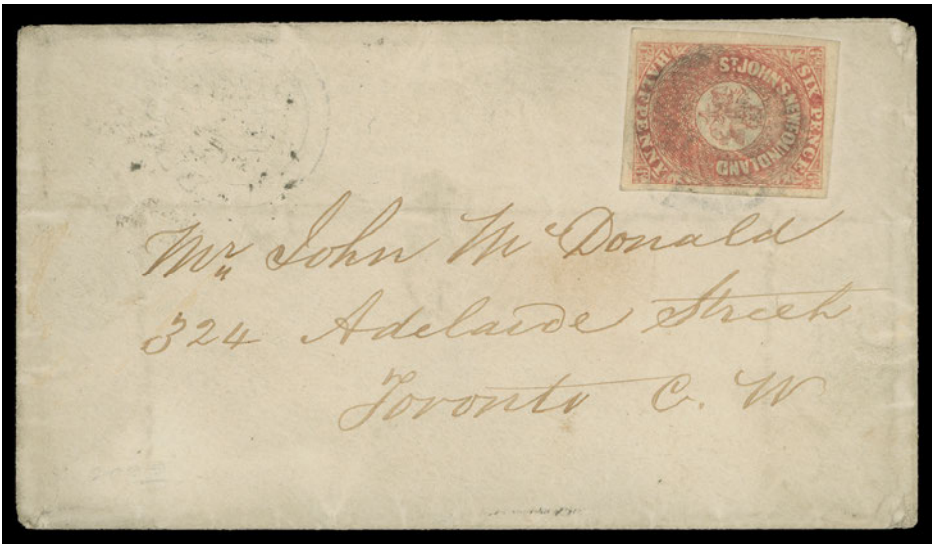 ST. JOHN'S NEWFOUNDLAND
SIX PENCE
HALF PENNY
Mr. John McDonald
324 Adelaide Street
Toronto C. W